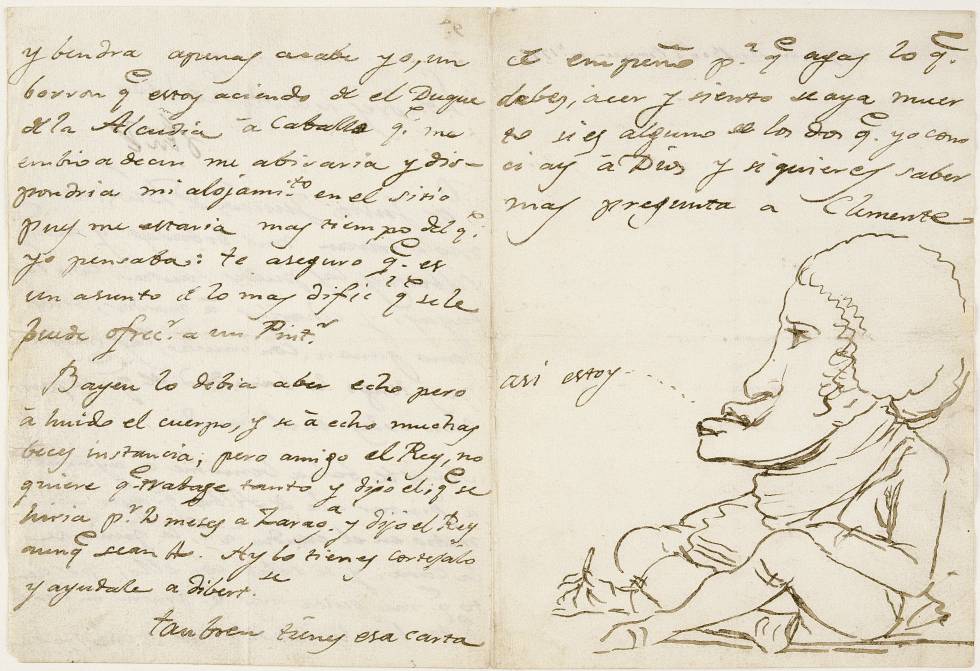 y bendra apenas acabe yo, un
borron qe estoy aciendo de el Duque
de la Alcudia à Caballo qe me
embio a decir me abisaria y dis-
pondria mi alojamito en el sitio
pues me estaria mas tiempo del qe
yo pensaba: te aseguro qe es
un asunto de lo mas dificil qe se le
puede ofrecr a un Pintr
Bayeu lo debia aber echo pero
à huido el cuerpo, y se à echo muchas
beces instancia; pero amigo el Rey, no
quiere qe trabage tanto y dijo el, qe se
hiria pr 2 meses a Zaraga y dijo el Rey
aunqe sean 4. Ay lo tienes cortejalo
y ayudale a dibertse
tambien tienes esa carta
de empeño pa qe agas lo qe
debes, acer y siento se aya muer
to si es alguno de los dos qe yo cono
ci ay à Dios y si quieres saber
mas pregunta a Clemente
asi estoy
9a